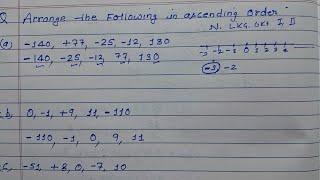 Q Arrange the Following in ascending order
N. LKG. UKG I, II
(a) -140, +77, -25, -12, 130
-140, -25, -12, 77, 130
-3 -2 -1 0 1 2 3 4
-3 -2
b, 0, -1, +9, 11, -110
-110, -1, 0, 9, 11
C, -51, +2, 0, -7, 10